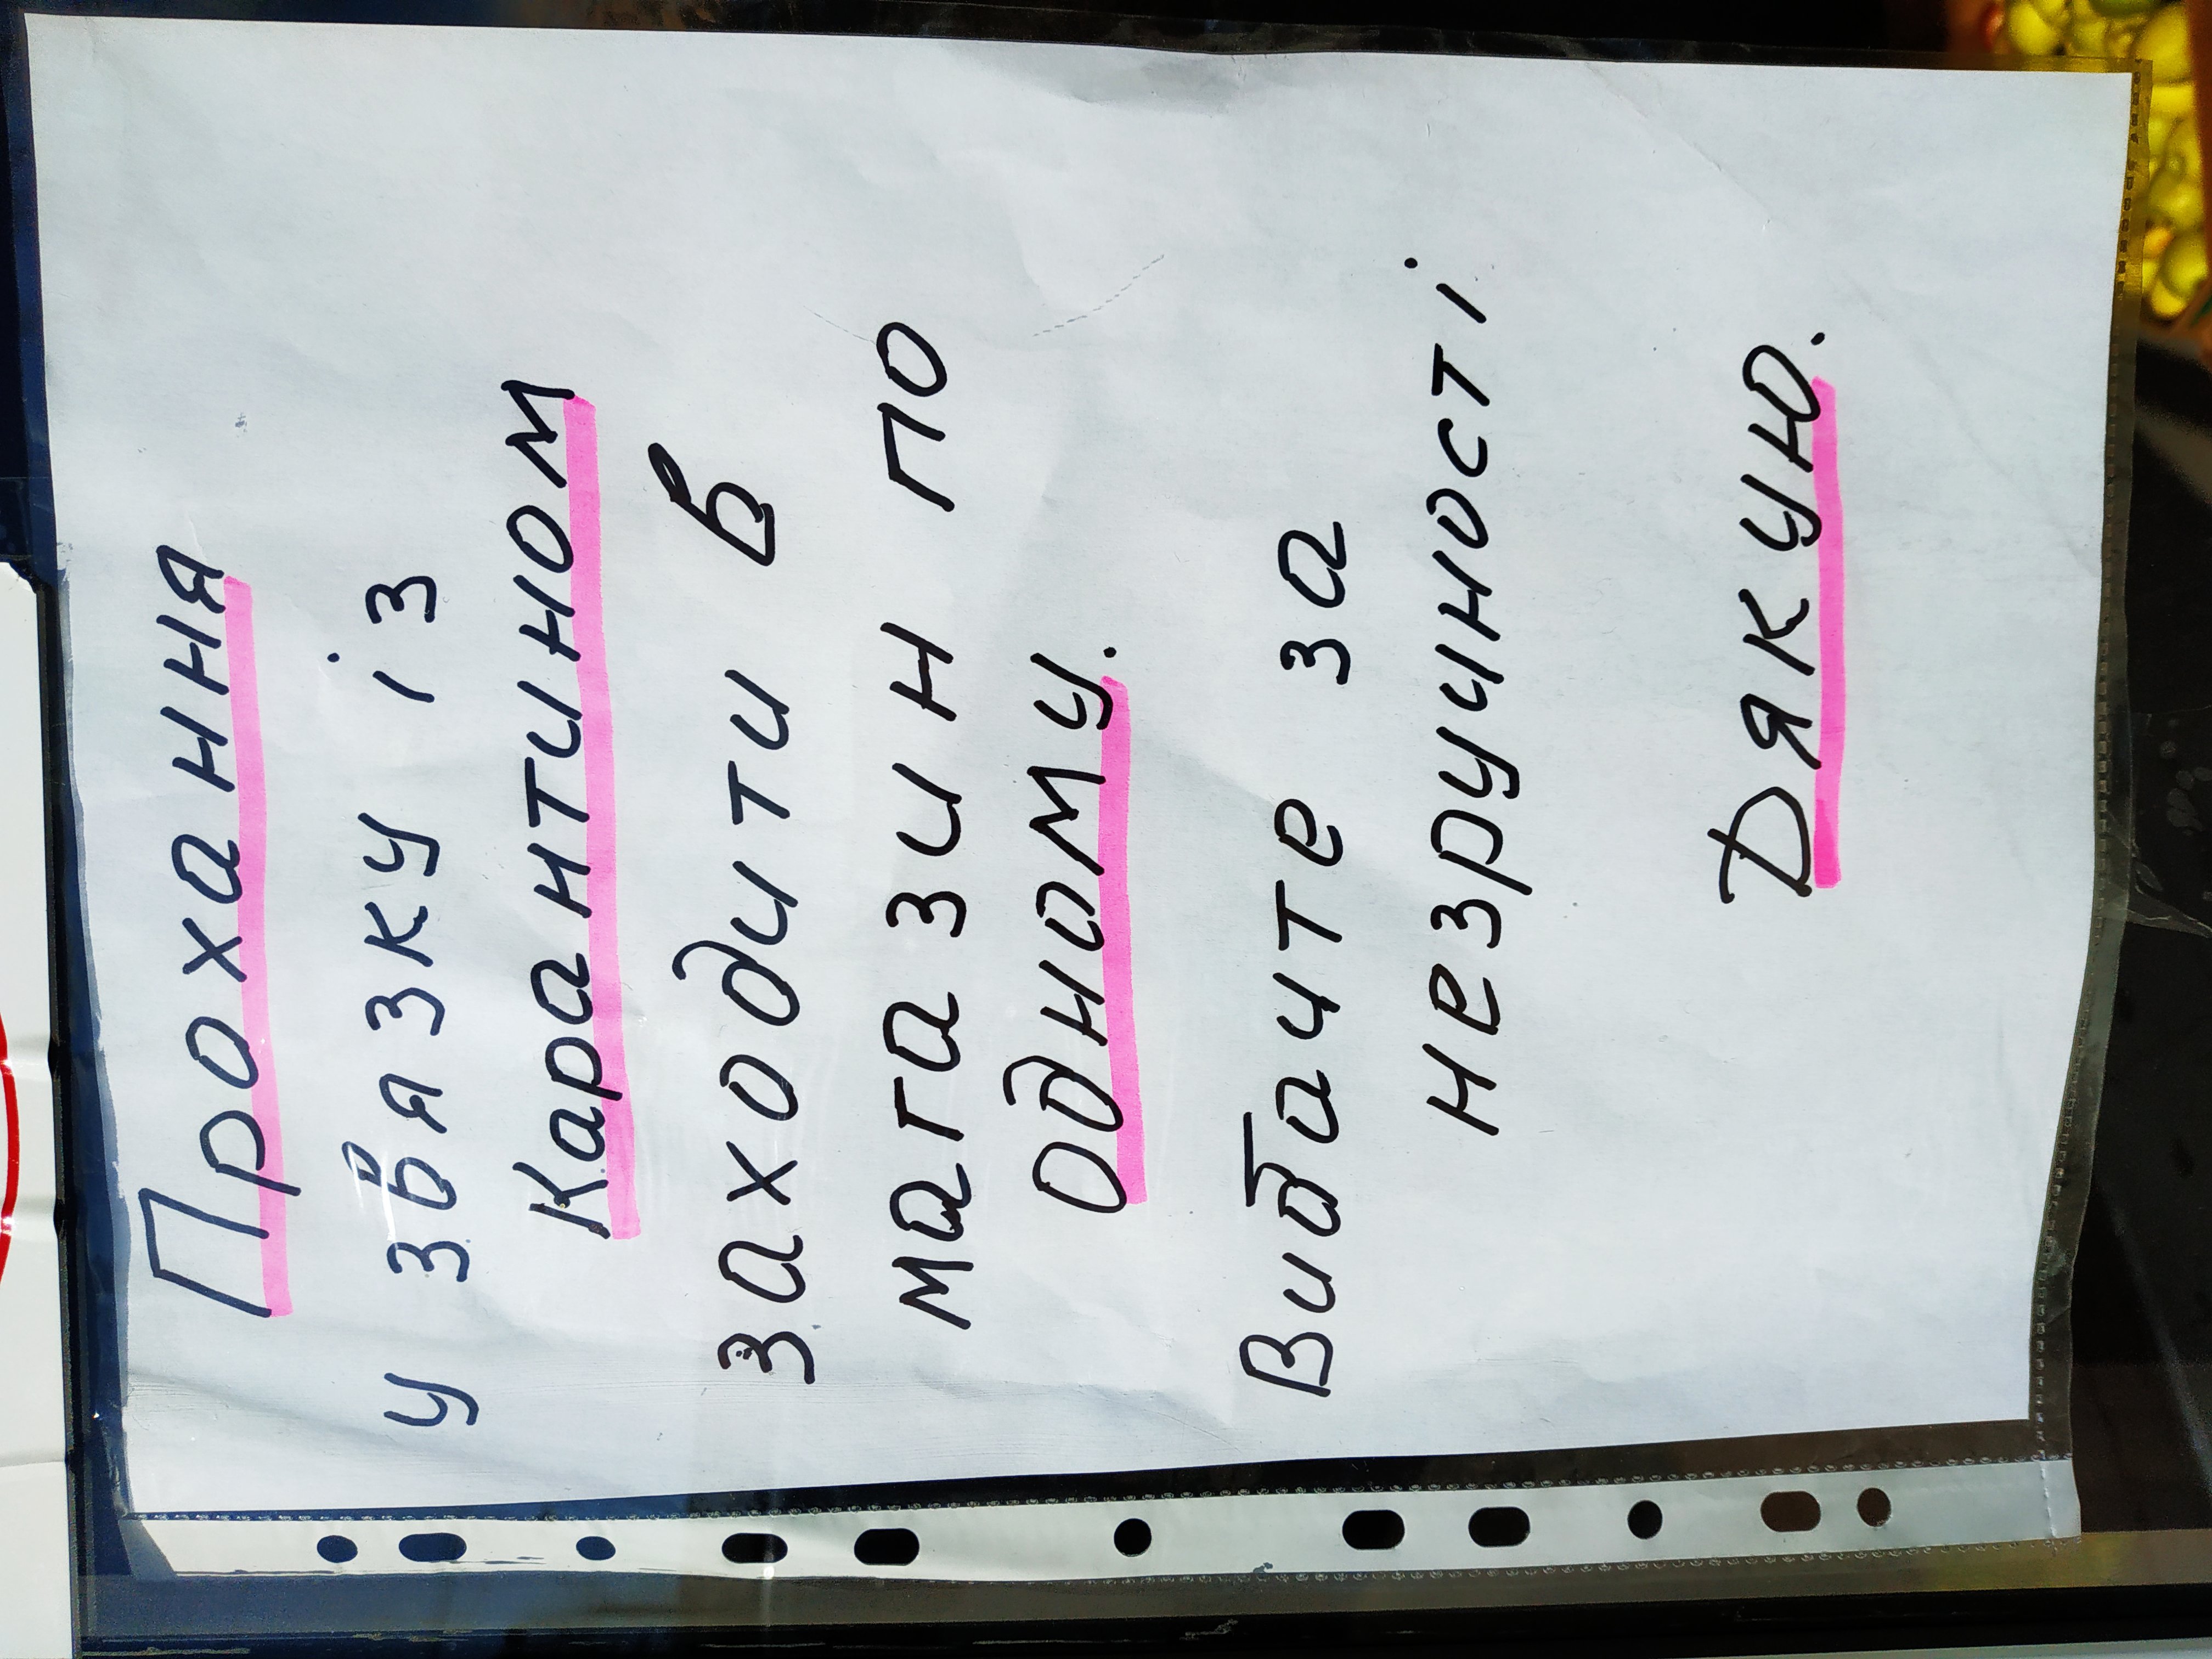 Прохання
у звязку із
Карантином
заходити в
магазин по
одному.
Вибачте за
незручності
Дякую.